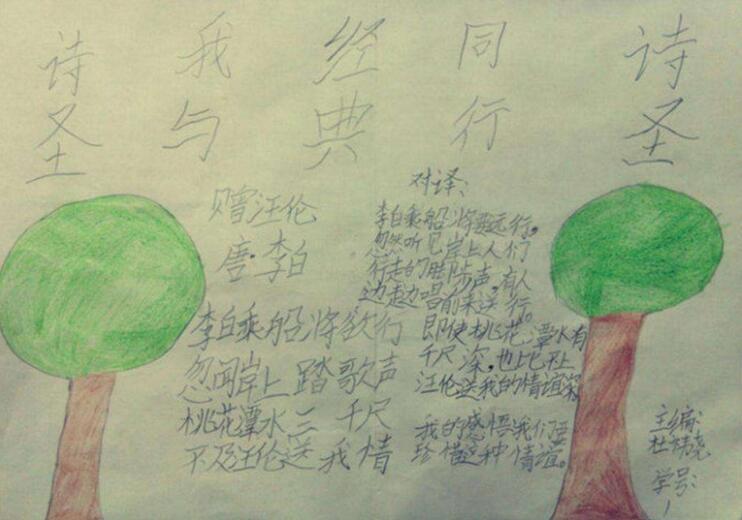 诗圣
我与
经典
同行
诗圣
赠汪伦
唐·李白
李白乘船将欲行
忽闻岸上踏歌声
桃花潭水三千尺
不及汪伦送我情
对译：
李白乘船将要远行，
忽然听见岸上人们
行走的脚步声，有人
边走边唱前来送行。
即使桃花潭水有
千尺深，也比不上
汪伦送我的情谊深
我的感悟我们要
珍惜这种情谊。
主编：
杜
学号：
1